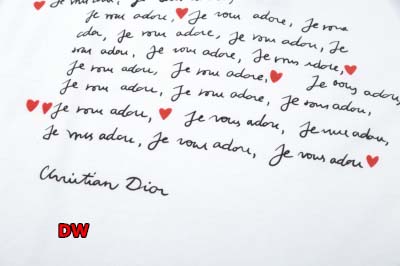 Je vous adore, Je vous
adore, Je vous adore, Je vous adore, Je
vous adore, Je vous adore, Je vous adore,
Je vous adore, Je vous adore, Je vous adore,
Je vous adore, Je vous adore, Je vous adore,
Je vous adore, Je vous adore, Je vous adore,
Je vous adore, Je vous adore, Je vous adore
Christian Dior
DW